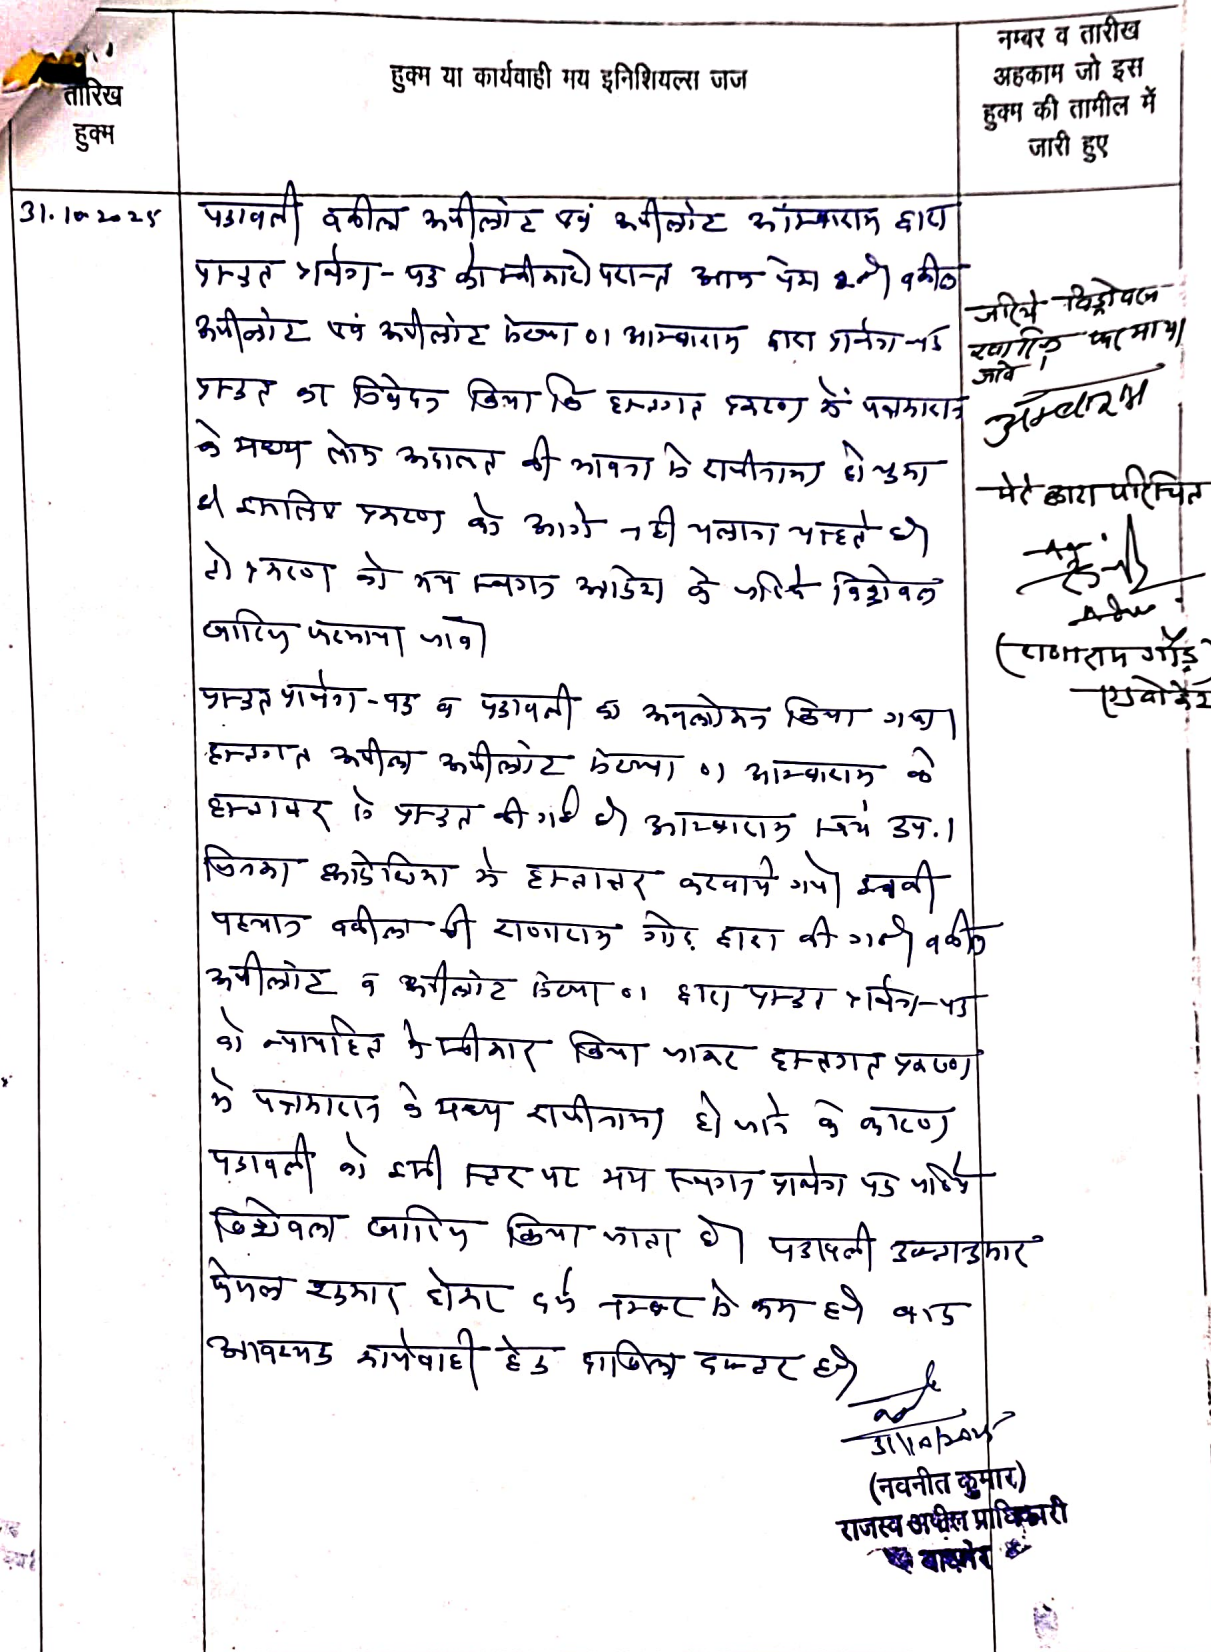 तारिख
हुक्म
हुक्म या कार्यवाही मय इनिशियल्स जज
नम्बर व तारीख
अहकाम जो इस
हुक्म की तामील में
जारी हुए
31.10.2025
पत्रावली वकील अपीलांट एवं अपीलांट आम्बाराम द्वारा
प्रस्तुत प्रार्थना-पत्र को स्वीकारे परान्त आज पेश हुई। वकील
अपीलांट एवं अपीलांट संख्या 01 आम्बाराम द्वारा प्रार्थना-पत्र
प्रस्तुत कर निवेदन किया कि हस्तगत प्रकरण में पक्षकारान
के मध्य लोक अदालत की भावना से राजीनामा हो चुका
है। इसलिए प्रकरण को आगे नहीं चलाना चाहते है।
सो प्रकरण को मय स्थगन आदेश के जरिये विड्रोवल
खारिज फरमाया जावे।
प्रस्तुत प्रार्थना-पत्र व पत्रावली का अवलोकन किया गया।
हस्तगत अपील अपीलांट संख्या 01 आम्बाराम के
हस्ताक्षर से प्रस्तुत की गई है। आम्बाराम स्वयं उप.।
जिनका आदेशिका में हस्ताक्षर करवाये गये। इनकी
पहचान वकील श्री राणाराम गौड़ द्वारा की गई। वकील
अपीलांट व अपीलांट संख्या 01 द्वारा प्रस्तुत प्रार्थना-पत्र
को न्यायहित में स्वीकार किया जाकर हस्तगत प्रकरण
में पक्षकारान के मध्य राजीनामा हो जाने के कारण
पत्रावली को इसी स्तर पर मय स्थगन प्रार्थना पत्र जरिये
विड्रोवल खारिज किया जाता है। पत्रावली उक्तानुसार
फैसल शुमार होकर दर्ज नम्बर से कम हो। बाद
आवश्यक कार्यवाही हेतु दाखिल दफ्तर हो।
जरिये विड्रोवल
खारिज फरमाया
जावे।
आम्बाराम
मेरे द्वारा परिचित
(राणाराम गौड़)
एडवोकेट
31/10/2025
(नवनीत कुमार)
राजस्व अपील प्राधिकारी
बाड़मेर